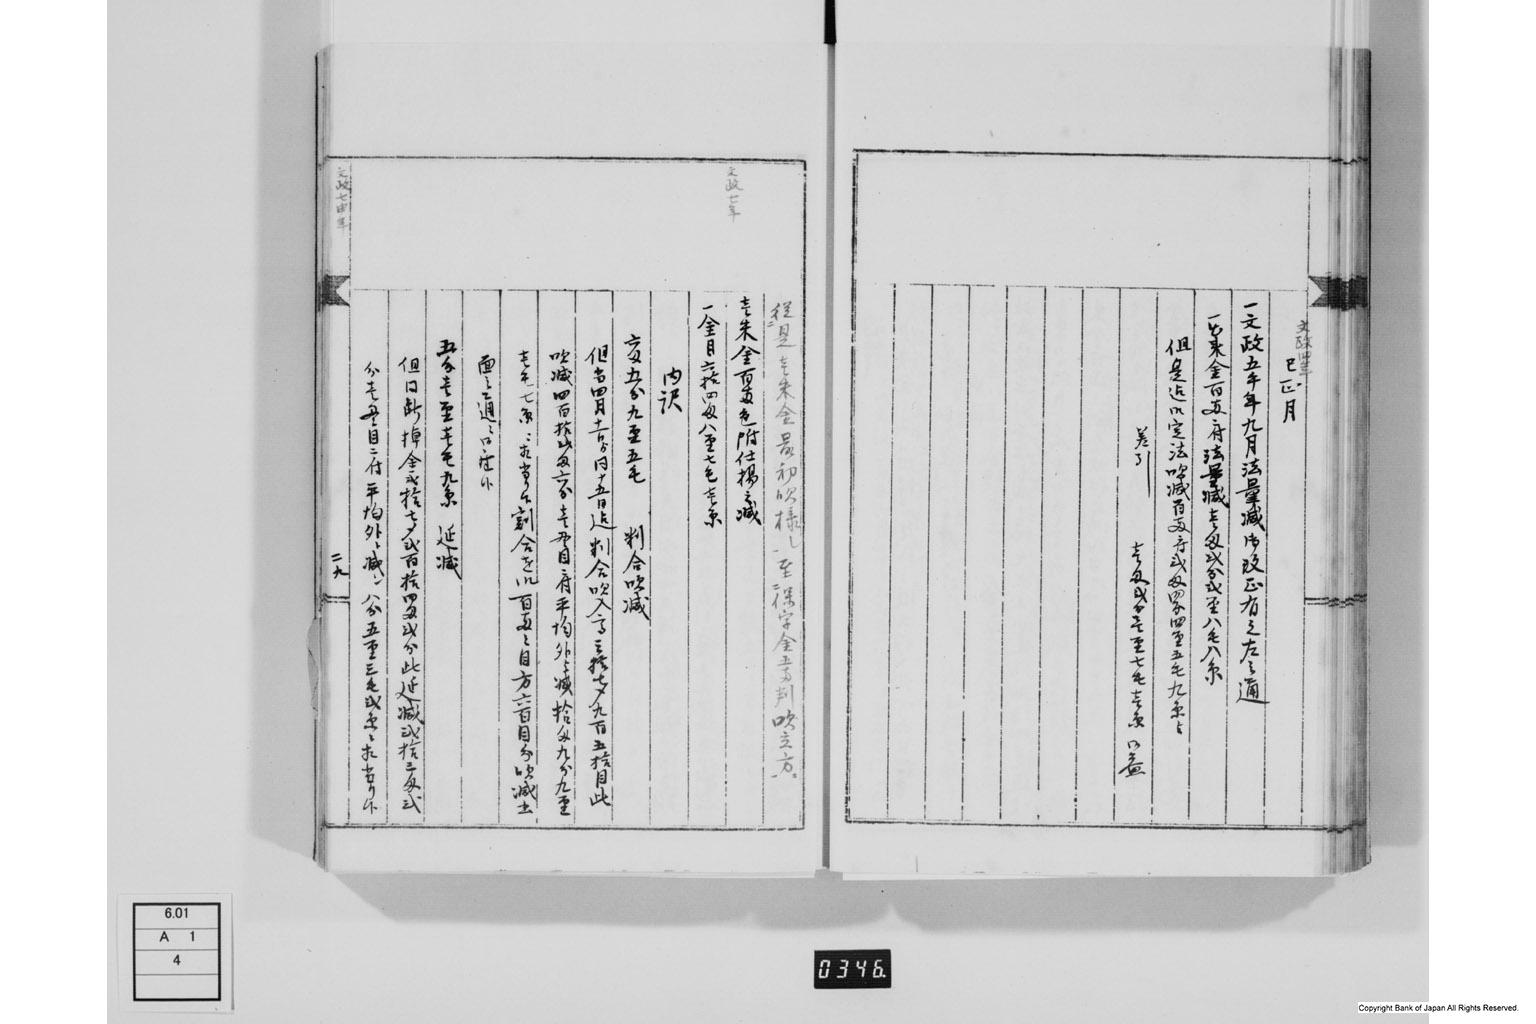 文政四年
巳正月
一文政五午年九月法量減御改正有之左之通
一壱朱金百両ニ付法量減壱匁弐分弐厘八毛八糸
但是迄御定法吹減百両ニ付弐匁四分四厘五毛九糸与
差引 壱匁弐分壱厘七毛壱糸 御益
従是壱朱金最初吹様し至保字金五両判吹立方
文政七年
壱朱金百両ニ付仕揚之減
一金目六拾四匁八厘七毛壱糸
内訳
六匁五分九厘五毛 判合吹減
但当四月十一日ゟ同十五日迄判合吹入高三拾七〆九百五拾目此
吹減四百拾弐匁六分壱〆目ニ付平均外之減拾匁九分九厘
壱毛七糸ニ相当り割合を以百両之目方六百目分吹減書
面之通ニ御座候
五分壱厘壱毛九糸 延減
但同断棹金弐拾七〆弐百拾四匁弐分此延減弐拾三匁弐
分壱〆目ニ付平均外之減ハ八分五厘三毛弐糸ニ相当り候
文政七申年
二九
6.01
A 1
4
0346.
Copyright Bank of Japan All Rights Reserved.